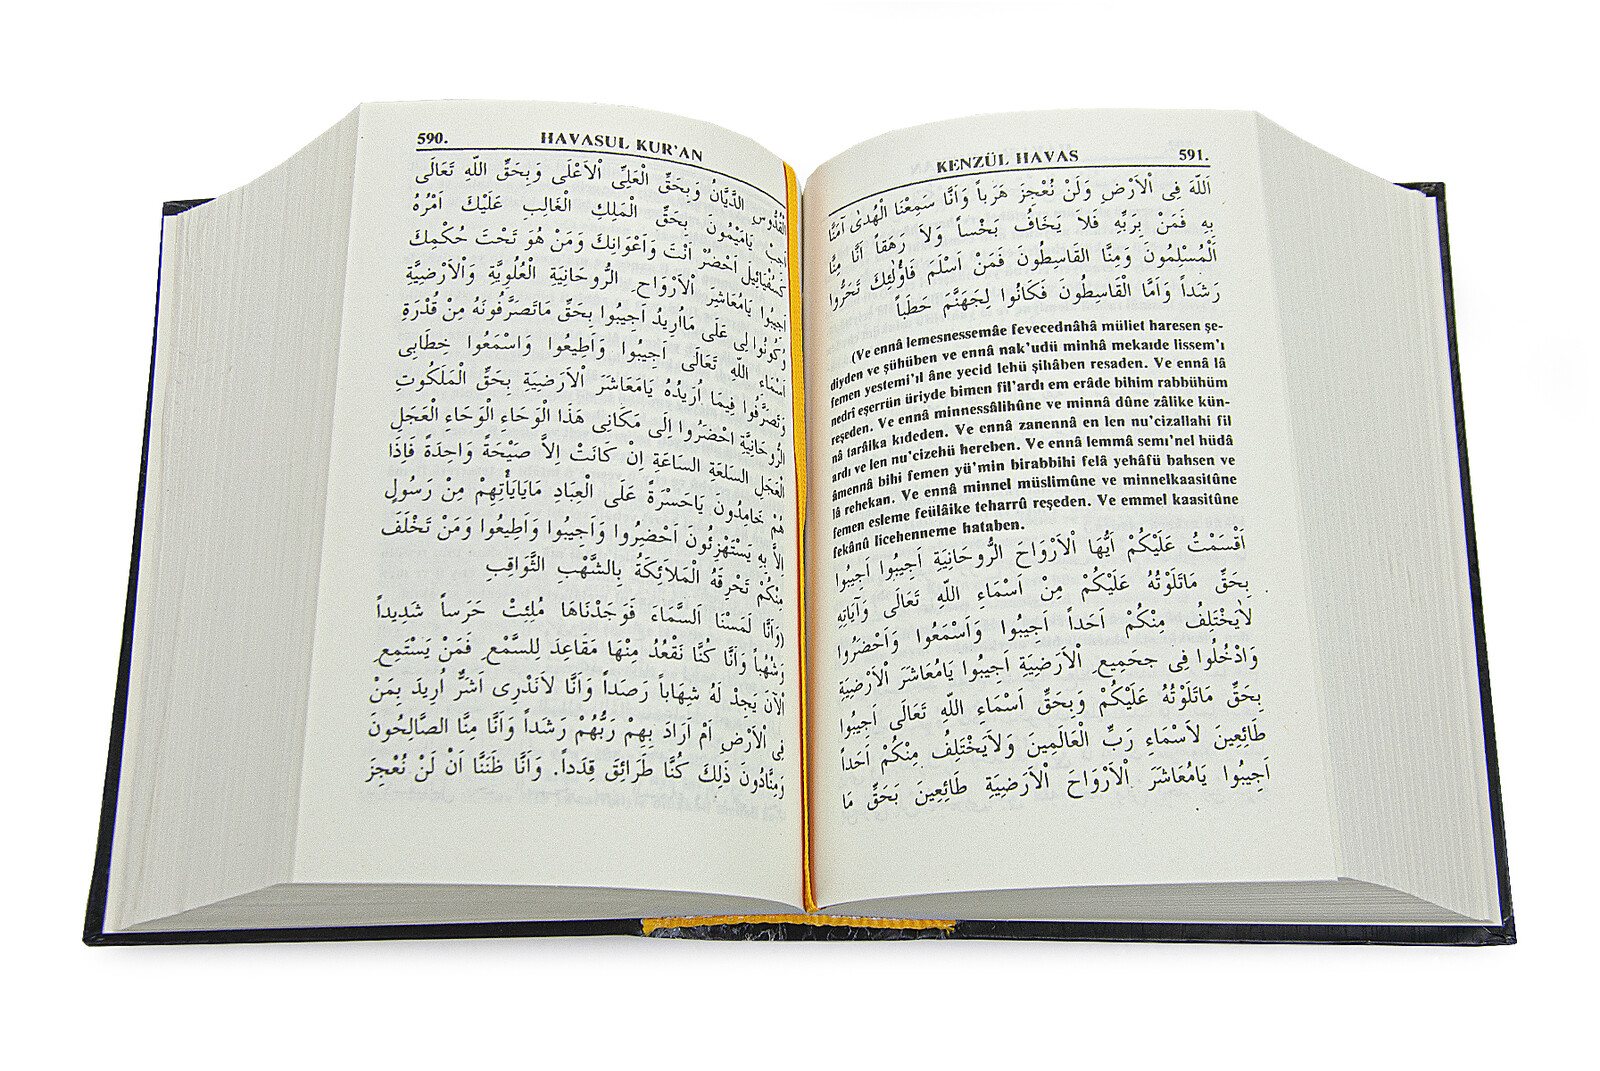 590. HAVASUL KUR'AN
الْقُدُّوسِ الدَّيَّانُ وَبِحَقِّ الْعَلِىِّ الْاَعْلَى وَبِحَقِّ اللّٰهِ تَعَالَى
اَجِبْ يَامَيْمُونَ بِحَقِّ الْمَلِكِ الْغَالِبِ عَلَيْكَ اَمْرُهُ
كَسْفَيَائِيلَ اَحْضُرْ اَنْتَ وَاَعْوَانِكَ وَمَنْ هُوَ تَحْتَ حُكْمِكَ
اَجِيبُوا يَامُعَاشِرَ الْاَرْوَاحِ الرُّوحَانِيَةِ الْعُلْوِيَّةِ وَالْاَرْضِيَّةِ
وَكُونُوا لِى عَلَى مَااُرِيدُ اَجِيبُوا بِحَقِّ مَاتَصَرَّفُونَهُ مِنْ قُدْرَةِ
اَسْمَاءِ اللّٰهِ تَعَالَى اَجِيبُوا وَاَطِيعُوا وَاسْمَعُوا خِطَابِى
وَتَصَرَّفُوا فِيمَا اُرِيدُهُ يَامَعَاشَرَ الْاَرْضِيَةِ بِحَقِّ الْمَلَكُوتِ
الرُّوحَانِيَّةِ اِحْضَرُوا اِلَى مَكَانِى هَذَا الْوَحَاءِ الْوَحَاءِ الْعَجَلِ
الْعَجَلِ السَلعَةِ السَاعَةِ اِنْ كَانَتْ اِلاَّ صَيْحَةً وَاحِدَةً فَاِذَا
هُمْ خَامِدُونَ يَاحَسْرَةً عَلَى الْعِبَادِ مَايَأْتِهِمْ مِنْ رَسُولٍ
اِلاَّ بِهِ يَسْتَهْزِئُونَ اَحْضِرُوا وَاَجِيبُوا وَاَطِيعُوا وَمَنْ تَخَْلَفَ
مِنْكُمْ تَحْرِقَهُ الْمَلَائِكَةُ بِالشُّهْبِ الثَّوَاقِبِ
(وَاَنَّا لَمَسْنَا اَلسَّمَاءَ فَوَجَدْنَاهَا مُلِئَتْ حَرَساً شَدِيداً
وَشُهُباً وَاَنَّا كُنَّا نَقْعُدُ مِنْهَا مَقَاعِدَ لِلسَّمْعِ فَمَنْ يَسْتَمِعِ
الْاٰنَ يَجِدْ لَهُ شِهَاباً رَصَداً وَاَنَّا لَانَدْرِى اَشَرٌّ اُرِيدَ بِمَنْ
فِى الْاَرْضِ اَمْ اَرَادَ بِهِمْ رَبُّهُمْ رَشَداً وَاَنَّا مِنَّا الصَّالِحُونَ
وَمِنَّادُونَ ذَلِكَ كُنَّا طَرَائِقَ قِدَداً. وَاَنَّا ظَنَنَّا اَنْ لَنْ نُعْجِزَ
KENZÜL HAVAS 591.
اَللّٰهَ فِى الْاَرْضِ وَلَنْ نُعْجِزَ هَرَباً وَاَنَّا سَمِعْنَا الْهُدٰى اٰمَنَّا
بِهِ فَمَنْ بِرَبِّهِ فَلَا يَخَافُ بَخْساً وَلَا رَهَقاً اَنَّا مِنَّا
اَلْمُسْلِمُونَ وَمِنَّا القَاسِطُونَ فَمَنْ اَسْلَمَ فَاُولٰئِكَ تَحَرُّوا
رَشَداً وَاَمَّا الْقَاسِطُونَ فَكَانُوا لِجَهَنَّمَ حَطَباً
(Ve ennâ lemesnessemâe fevecednâhâ müliet haresen şe-
diyden ve şühüben ve ennâ nak'udü minhâ mekaıde lissem'ı
femen yestemi'ıl âne yecid lehü şihâben resaden. Ve ennâ lâ
nedrî eşerrün üriyde bimen fil'ardı em erâde bihim rabbühüm
reşeden. Ve ennâ minnessâlihûne ve minnâ dûne zâlike kün-
nâ tarâika kıdeden. Ve ennâ zanennâ en len nu'cizallahi fil
ardı ve len nu'cizehü hereben. Ve ennâ lemmâ semı'nel hüdâ
âmennâ bihi femen yü'min birabbihi felâ yehâfü bahsen ve
lâ rehekan. Ve ennâ minnel müslimûne ve minnelkaasitûne
femen esleme feülâike teharrû reşeden. Ve emmel kaasitûne
fekânû licehenneme hataben.
اَقْسَمْتُ عَلَيْكُمْ اَيُّهَا الْاَرْوَاحَ الرُّوحَانِيَةِ اَجِيبُوا اَجِيبُوا
بِحَقِّ مَاتَلَوْتُهُ عَلَيْكُمْ مِنْ اَسْمَاءِ اللّٰهِ تَعَالَى وَآيَاتِهِ
لَايَخْتَلِفُ مِنْكُمْ اَحَداً اَجِيبُوا وَاَسْمَعُوا وَاَحْضَرُوا
وَادْخُلُوا فِى جَحَمِيعِ الْاَرْضِيَةِ اَجِيبُوا يَامُعَاشَرَ الْاَرْضِيَةِ
بِحَقِّ مَاتَلَوْتُهُ عَلَيْكُمْ وَبِحَقِّ اَسْمَاءِ اللّٰهِ تَعَالَى اَجِيبُوا
طَائِعِينَ لَاسْمَاءِ رَبِّ الْعَالَمِينَ وَلَايَخْتَلِفُ مِنْكُمْ اَحَداً
اَجِيبُوا يَامُعَاشَرَ الْاَرْوَاحَ الْاَرْضِيَةِ طَائِعِينَ بَحَقِّ مَا